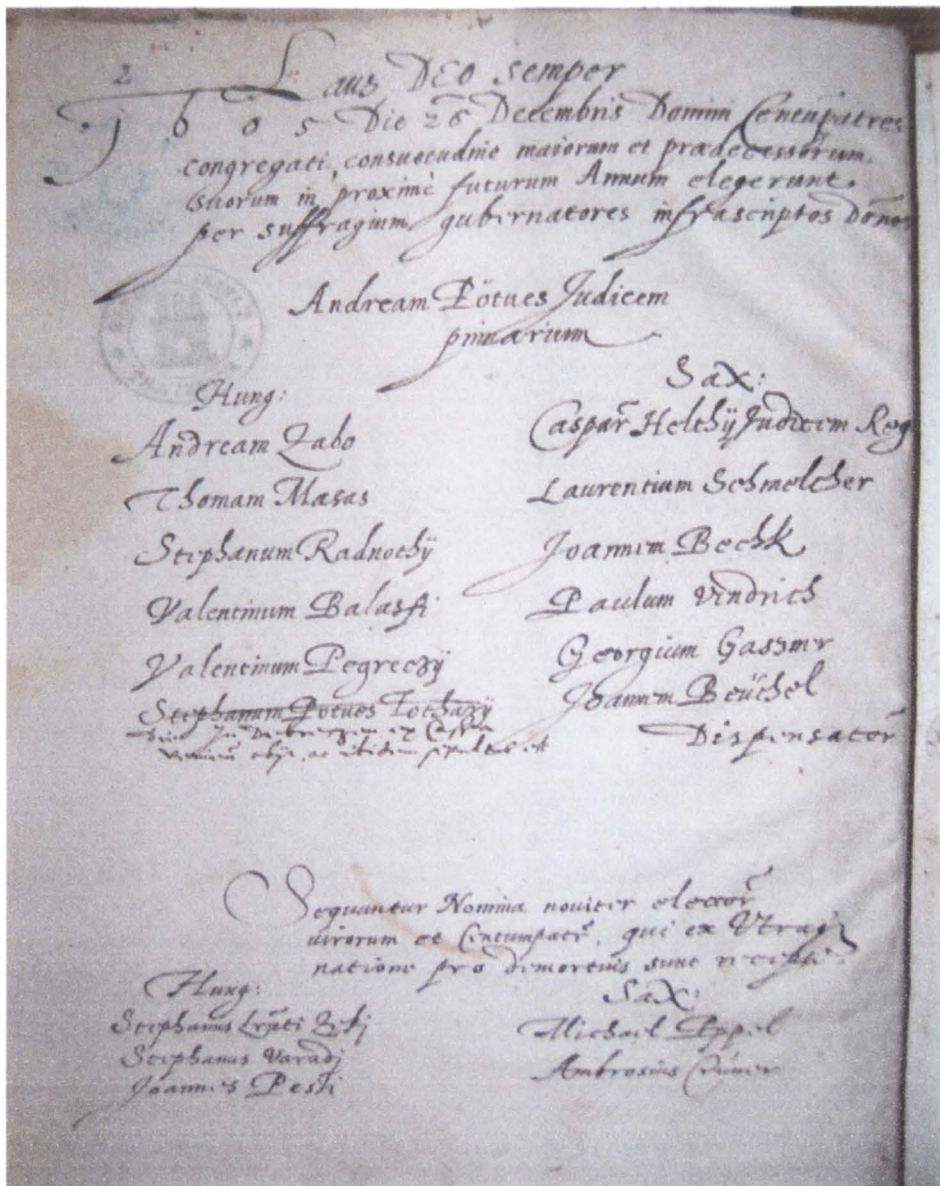 2
Laus DEO semper
1605 Die 26 Decembris Domini Centūpatres
congregati, consuetudine maiorum et prædecessorum
suorum in proximè futurum Annum elegerunt
per suffragium gubernatores infrascriptos Dōno
Andream Pötues Judicem
primarium
Hung:
Andream Zabo
Thomam Masas
Stephanum Radnothÿ
Valentinum Balasfi
Valentinum Pegreczÿ
Stephanum Potues Tothazÿ
ibidem sepultus est
Sax:
Caspar̃ Helthÿ Judicem Reg
Laurentium Schmelczer
Joannem Bechk
Paulum Vindrich
Georgium Gaszner
Johannem Beüchel
Dispensator̃
Sequuntur Nomina noviter elector̃
virorum et Centumpatr̃, qui ex Utraq;
natione pro demortuis sunt recepti.
Hung:
Stephanus
Stephanus Varadj
Joannes Pesti
Sax:
Michael Appel
Ambrosius